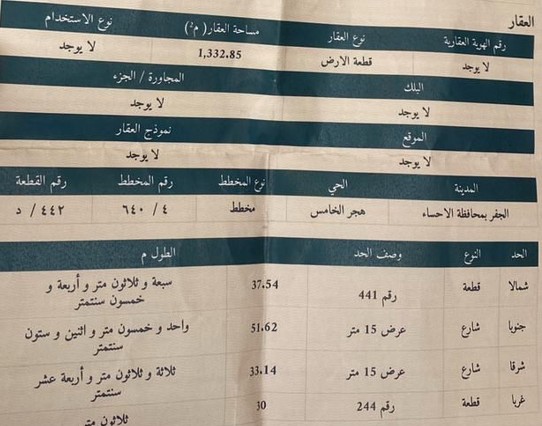 العقار
رقم الهوية العقارية نوع العقار مساحة العقار( م٢) نوع الاستخدام
لا يوجد قطعة الارض 1,332.85 لا يوجد
البلك المجاورة / الجزء
لا يوجد لا يوجد
الموقع نموذج العقار
لا يوجد لا يوجد
المدينة الحي نوع المخطط رقم المخطط رقم القطعة
الجفر بمحافظة الاحساء هجر الخامس مخطط ٤ / ٦٤٠ ٤٤٢ / د
الحد النوع وصف الحد الطول م
شمالا قطعة رقم 441 37.54 سبعة و ثلاثون متر و أربعة و
خمسون سنتمتر
جنوبا شارع عرض 15 متر 51.62 واحد و خمسون متر و اثنين و ستون
سنتمتر
شرقا شارع عرض 15 متر 33.14 ثلاثة و ثلاثون متر و أربعة عشر
سنتمتر
غربا قطعة رقم 244 30 ثلاثون متر